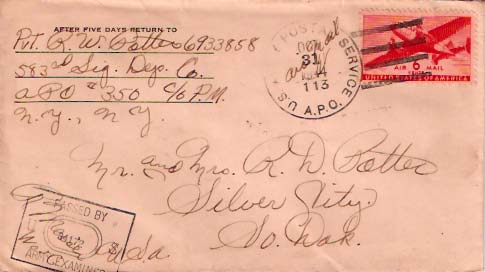 AFTER FIVE DAYS RETURN TO
Pvt. R. W. Potter 6933858
583rd Sig. Dep. Co.
APO # 350 c/o P.M.
N.Y., N.Y.
U.S. POSTAL SERVICE
31
113
A.P.O.
AIR 6 MAIL
UNITED STATES OF AMERICA
Mr. and Mrs. R. D. Potter
Silver City,
So. Dak.
PASSED BY
ARMY EXAMINER